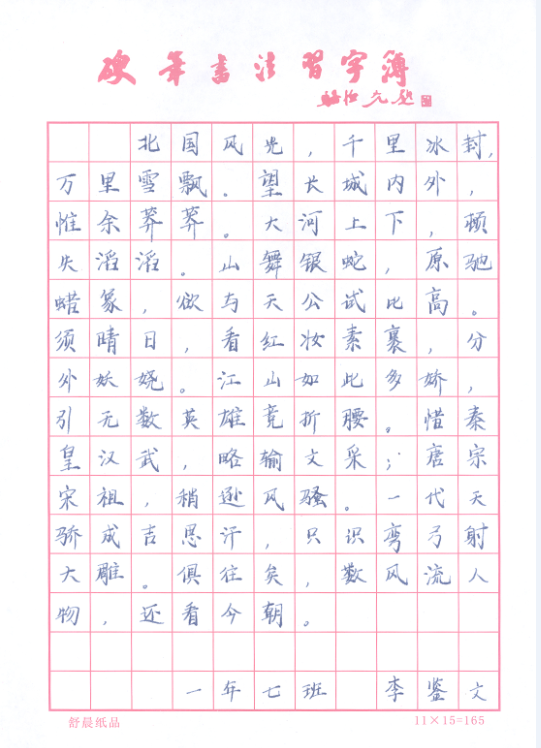 硬笔书法習字簿
北国风光，千里冰封，
万里雪飘。望长城内外，
惟余莽莽。大河上下，顿
失滔滔。山舞银蛇，原驰
蜡象，欲与天公试比高。
须晴日，看红妆素裹，分
外妖娆。江山如此多娇，
引无数英雄竞折腰。惜秦
皇汉武，略输文采；唐宗
宋祖，稍逊风骚。一代天
骄成吉思汗，只识弯弓射
大雕。俱往矣，数风流人
物，还看今朝。
一年七班 李鉴文
舒晨纸品 11×15=165